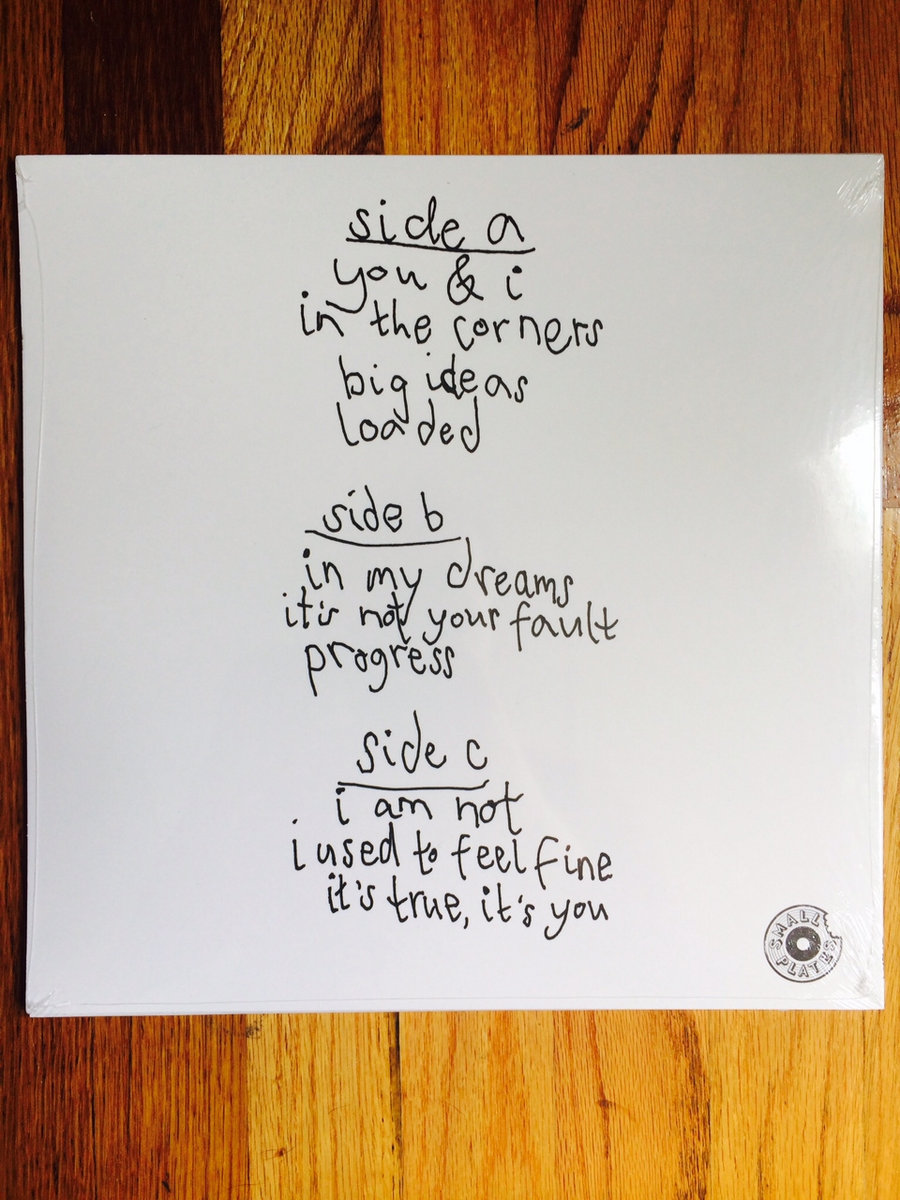 side a
you & i
in the corners
big ideas
loaded
side b
in my dreams
it's not your fault
progress
side c
i am not
i used to feel fine
it's true, it's you
SMALL
PLATES